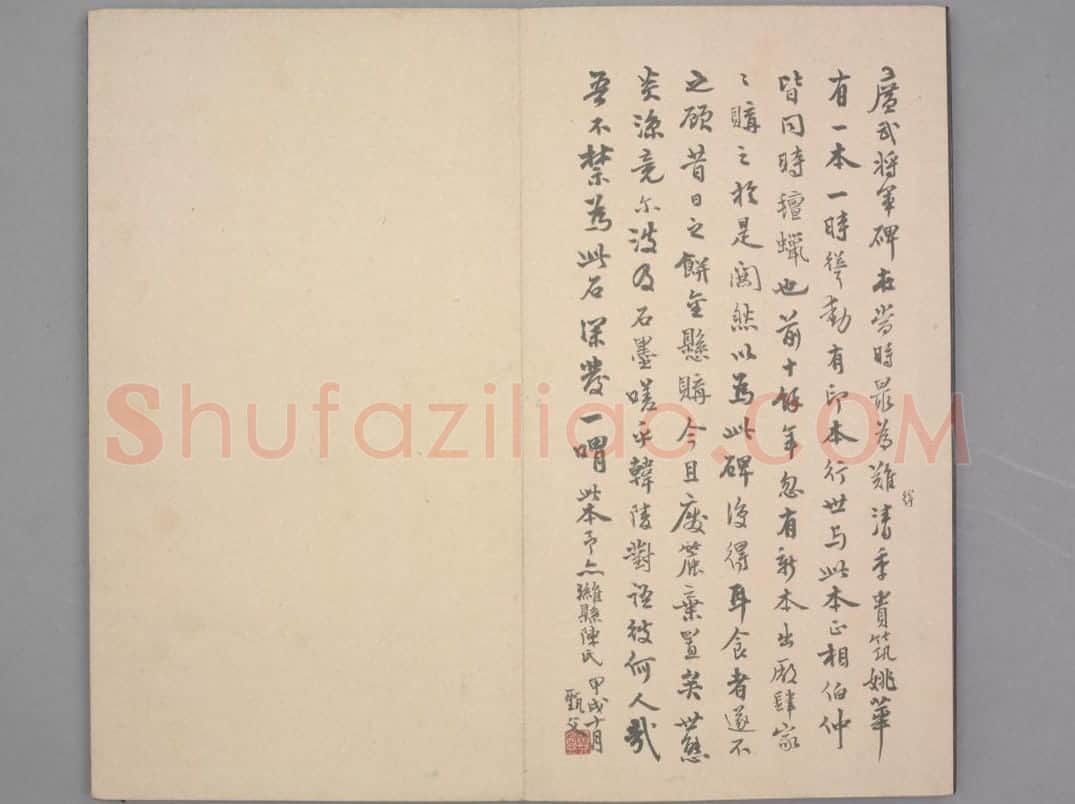 廣武將軍碑在當時最為難得清季貴筑姚華
有一本一時動有印本行世与此本正相伯仲
皆同時氊蠟也前十餘年忽有新本出厰肆家
〻購之於是然以為此碑復得耳食者遂不
之顧昔日之餅金懸購今且廢簏棄置矣世態
炎涼竟尔波及石墨嗟乎韓陵對語彼何人哉
吾不禁為此石深發一喟此本予濰縣陳氏甲戌十月
甄父
Shufaziliao.COM